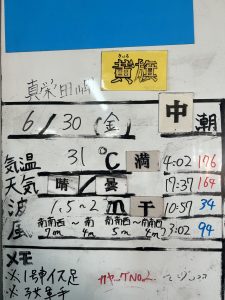 きいろ
黄旗
真栄田岬
6/30(金) 中潮
気温 31℃ 満 4:02 176
天気 晴/曇 17:37 164
波 1.5~2m 干 10:57 34
風 南南西~南 南西~南南西 3:02 94
7m 4m 5m 4m
メモ
※1号イス足
カヤックNo.2